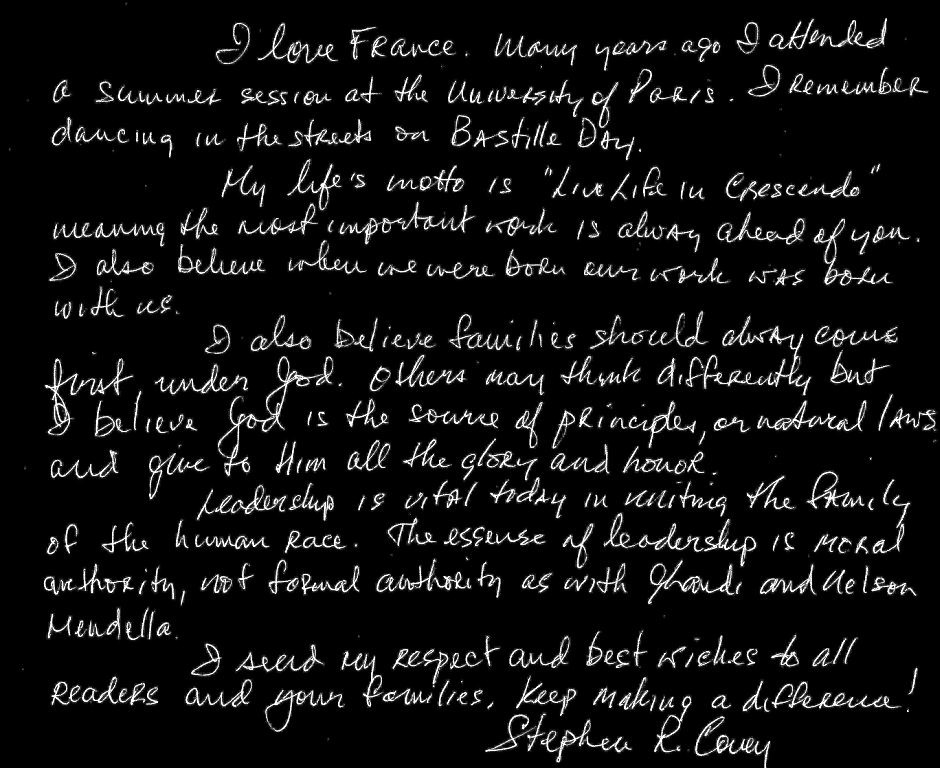 I love France. Many years ago I attended
a summer session at the University of Paris. I remember
dancing in the streets on Bastille Day.
My life's motto is "Live Life in Crescendo"
meaning the most important work is alway ahead of you.
I also believe when we were born our work was born
with us.
I also believe families should alway come
first, under God. Others may think differently but
I believe God is the source of principles, or natural laws
and give to Him all the glory and honor.
Leadership is vital today in uniting the family
of the human race. The essense of leadership is moral
authority, not formal authority as with Ghandi and Nelson
Mendella.
I send my respect and best wishes to all
readers and your families. Keep making a difference!
Stephen R. Covey